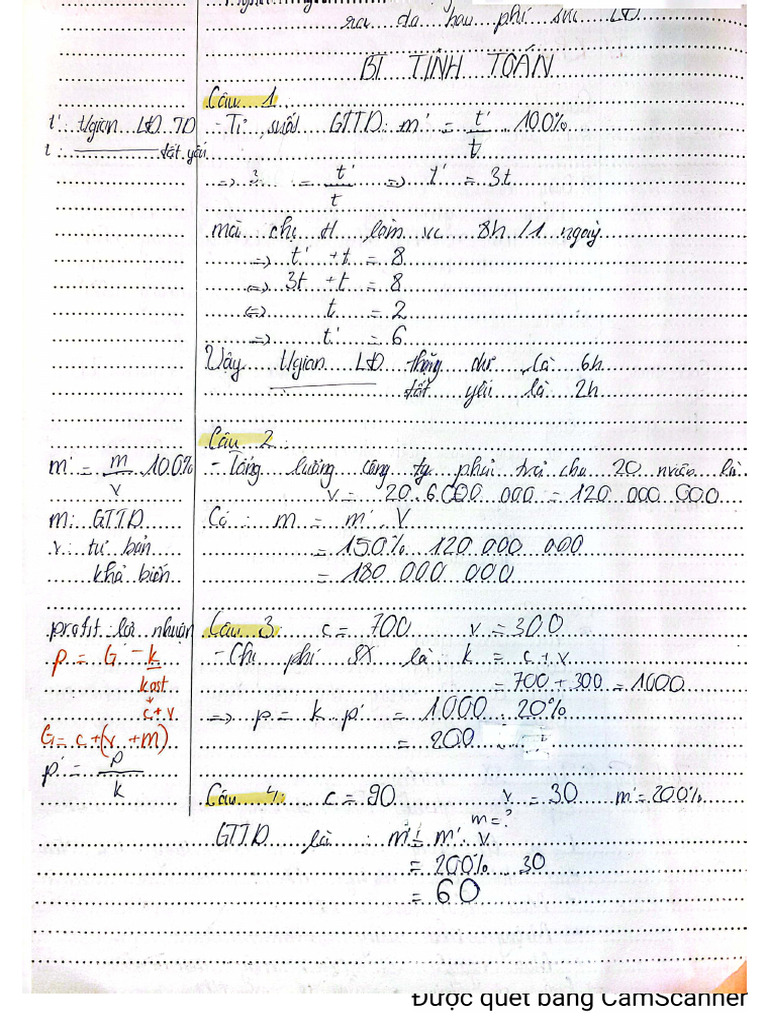 ra do hao phí sức LĐ
BT TÍNH TOÁN
Câu 1
t': tgian LĐ TD
t: ——— tất yếu
- Tỉ suất GTTD: m' = t'/t . 100%
=> 3 = t'/t => t' = 3t
mà chị H làm vc 8h /1 ngày
=> t' + t = 8
<=> 3t + t = 8
<=> t = 2
=> t' = 6
Vậy tgian LĐ thặng dư là 6h
——— tất yếu là 2h
Câu 2
m' = m/v . 100%
m: GTTD
v: tư bản
khả biến
- Tổng lương công ty phải trả cho 20 nviên là
v = 20.6000 000 = 120 000 000
Có: m = m'. V
= 150% . 120 000 000
= 180 000 000
profit: lợi nhuận
p = G - k
kost
↓
c + v
G = c + (v + m)
p' = p/k
Câu 3: c = 700 v = 300
- Chi phí SX là k = c + v
= 700 + 300 = 1000
=> p = k . p' = 1000 . 20%
= 200
Câu 4: c = 90 v = 30 m' = 200%
m = ?
GTTD là: m = m' . v
= 200% . 30
= 60
Được quét bằng CamScanner